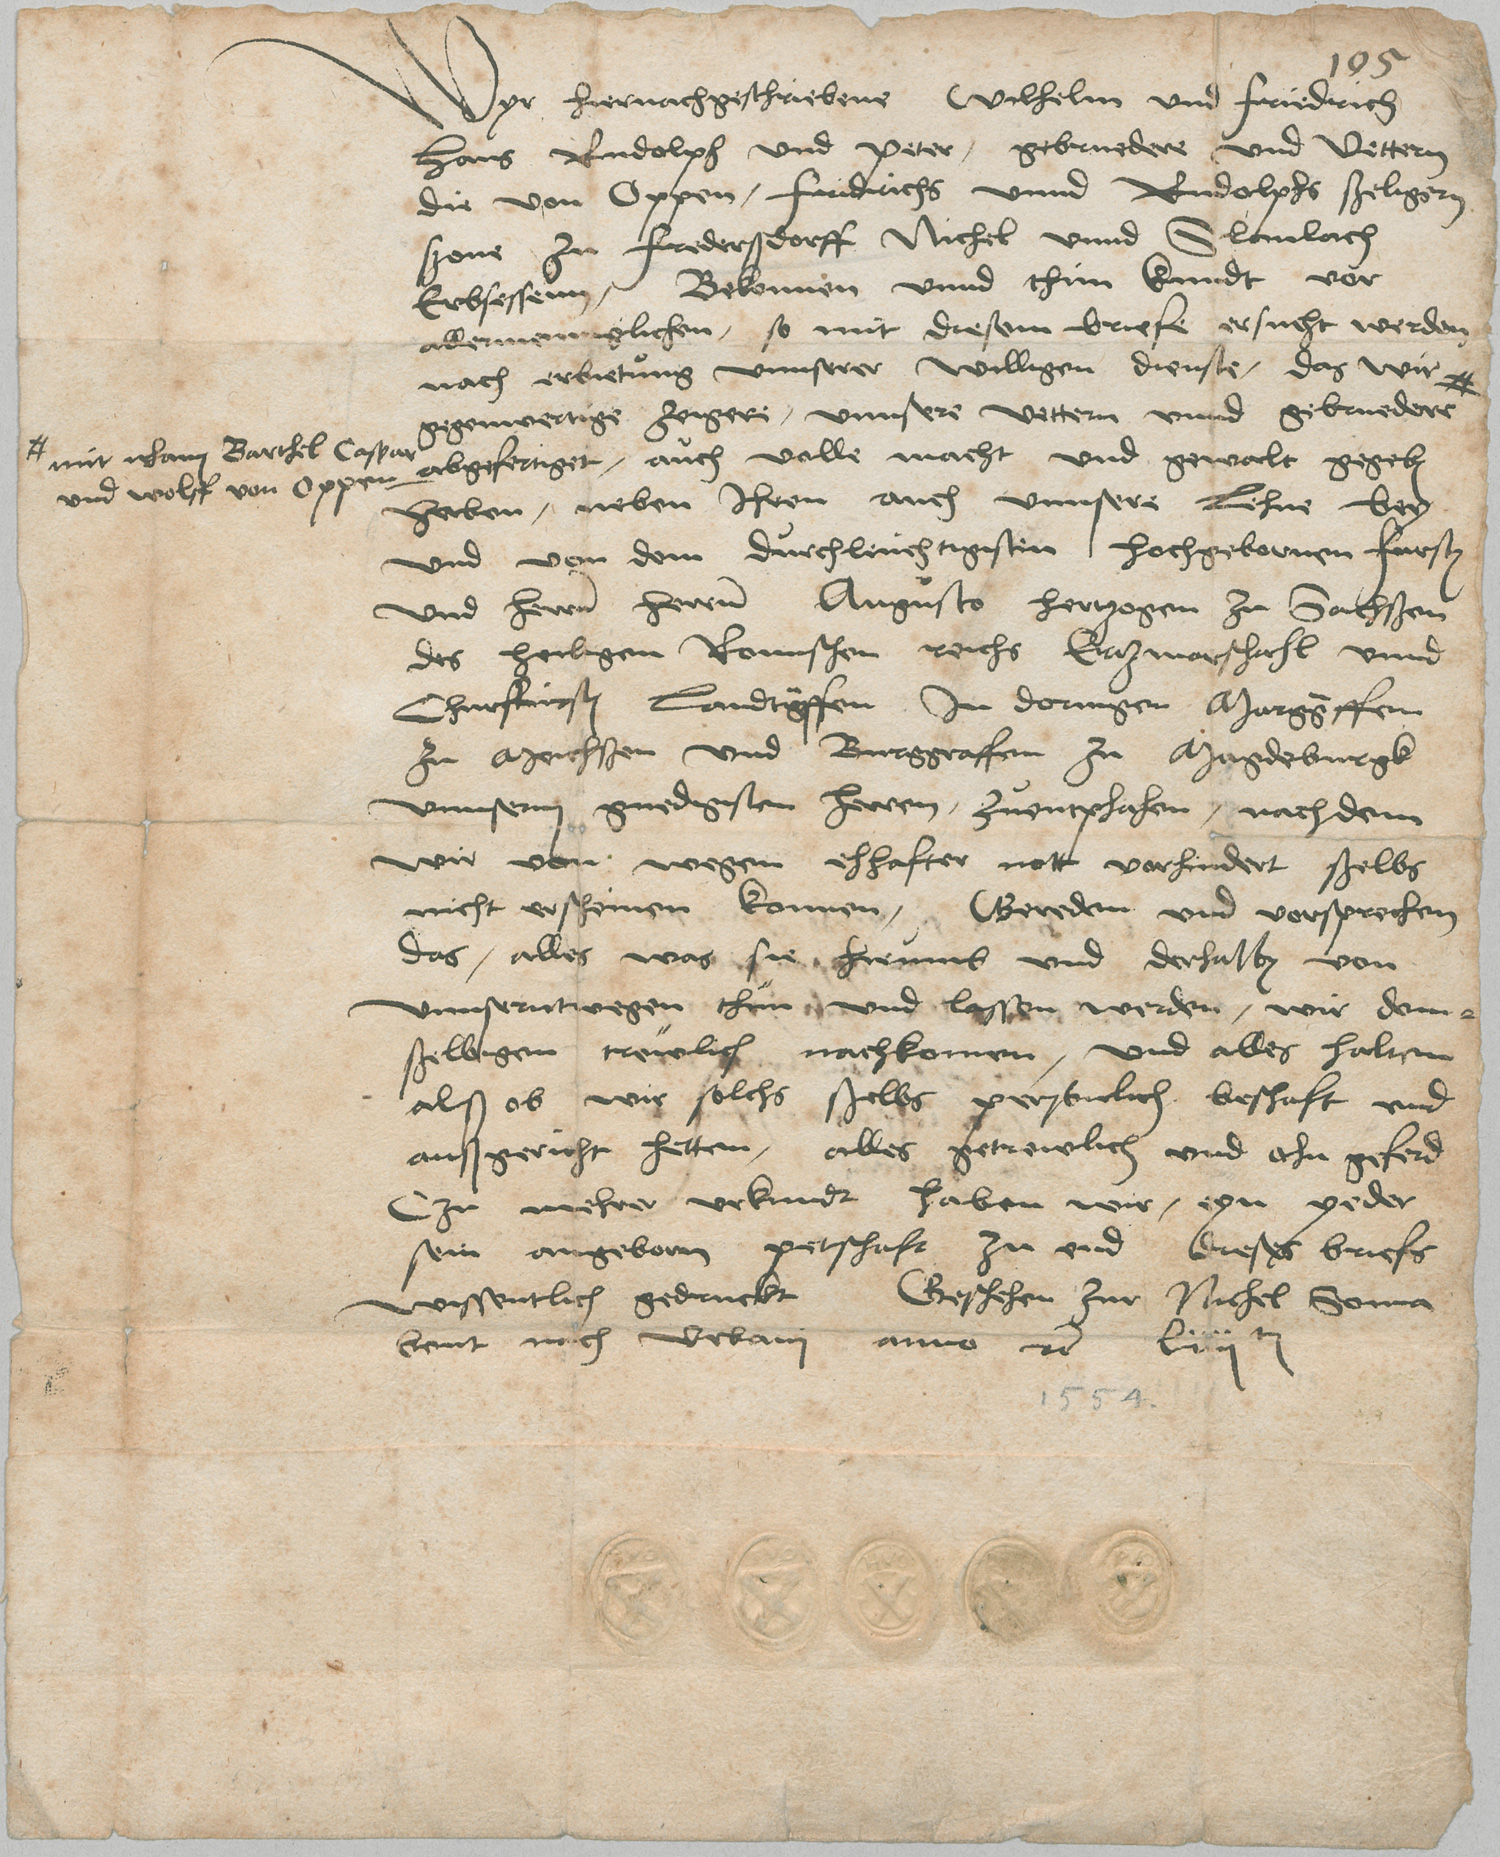 105
Wyr hiernachgeschriebene Wilhelm und Friedrich
Hans Rudolph und Peter, gebruedere und Vettern
die von Oppen, Fridrichs unnd Rudolphs szeligern
szone zu Fredersdorff Nichel unnd
Erbsessenn, Bekennen unnd thun kundt vor
allermenniglichen, so mit diesem briefe ersucht werden,
nach erbietung unnserer willigen dienste, das wir #
gegenwertige zeigere, unnsere vettern unnd gebruedere
# mit namen Barthel Caspar
und wolff von Oppen
abgefertiget, auch volle macht und gewalt gegeben
haben, neben Ihren auch unnsere Lehne bey
und von dem durchleuchtigisten hochgebornen fursten
und herrn herrn Augusto hertzogen zu Sachssen
des heiligen Romischen reichs Ertzmarschahl unnd
Churfursten Landtgraffen In doringen Marggraffen
zu Meichssen und Burggraffen zu Magdeburgk
unnserm gnedigisten herren, zuentphahen, nachdem
wir von wegen ehhafter nott vorhindert szelbs
nicht erscheinen konnen, Gereden und vorsprechen
das, alles was sie hirumb und derhalben von
unnserntwegen thun und lassen werden, wir dem-
szelbigen treulich nachkomen, und alles halten
alsz ob wir solchs szelbs personlich beschaft und
auszgericht hetten, alles getreulich und ohn geferd
Czu mehrer urkundt haben wir, eyn yeder
sein angeborn petschaft zu end dieses briefs
wissentlich gedruckt Geschehen zur Nichel Sonna
bent nach Urbani anno etc liiii ten
1554.